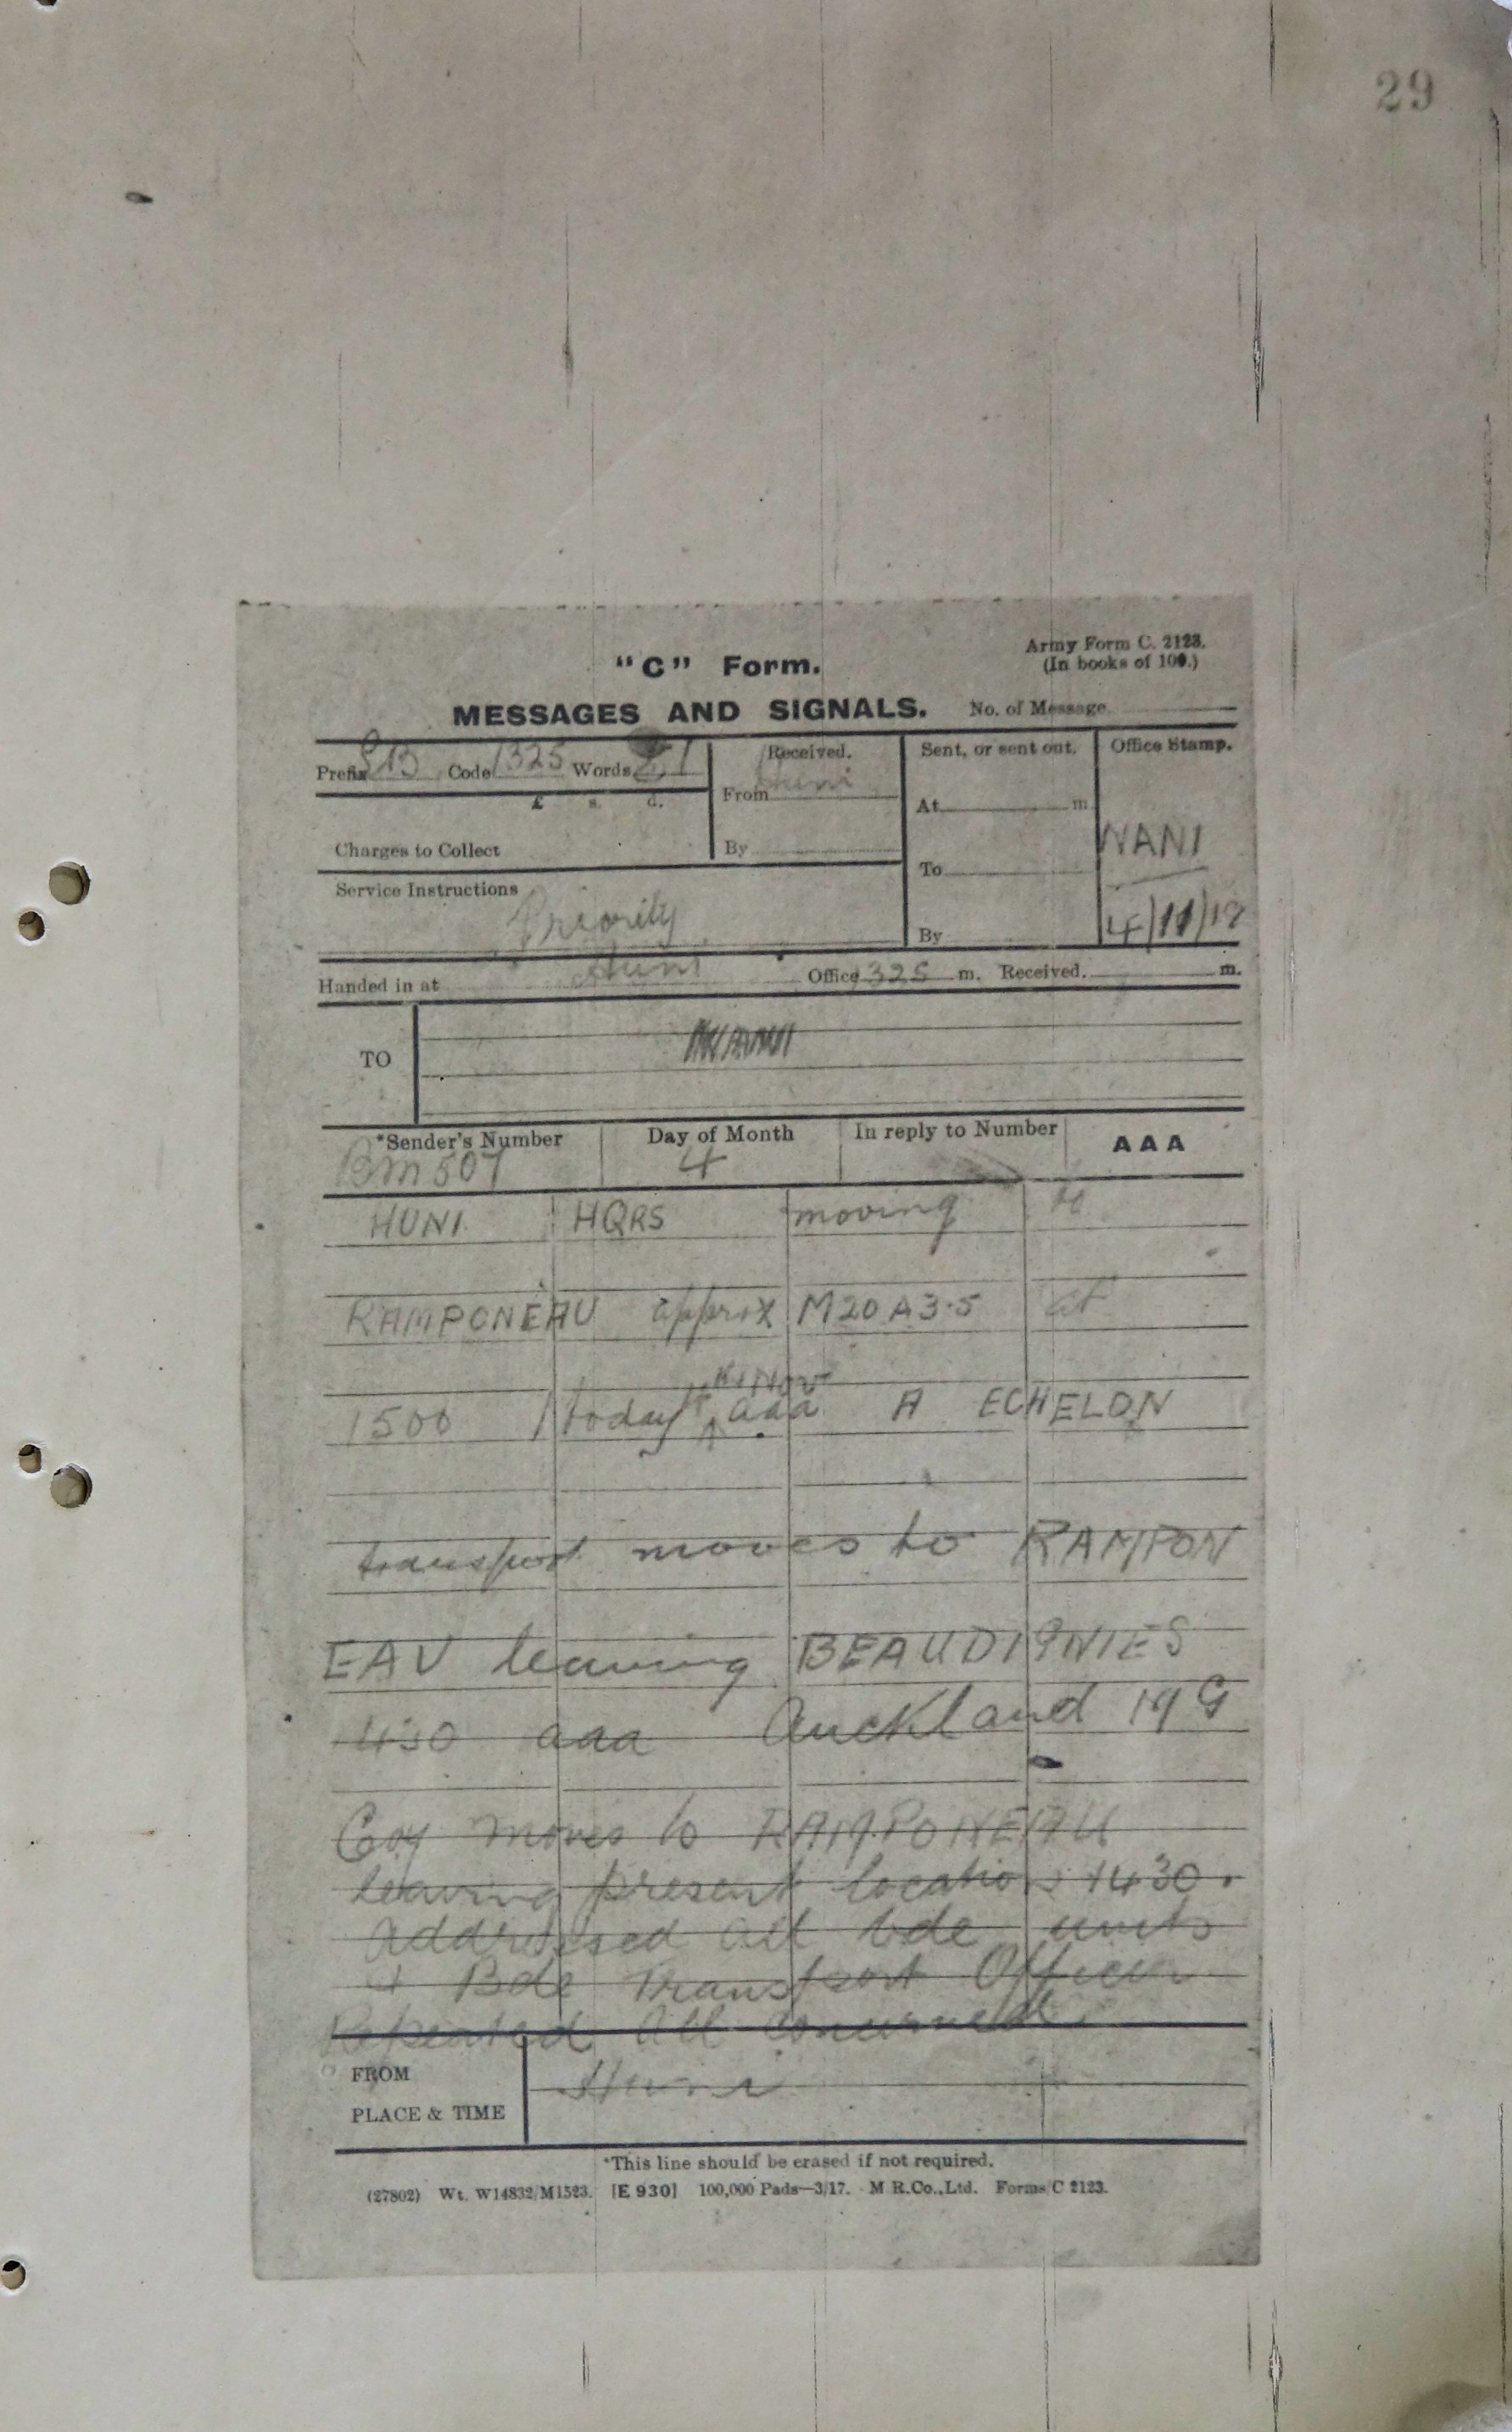 29
"C" Form.
Army Form C. 2123.
(In books of 100.)
MESSAGES AND SIGNALS. No. of Message
Prefix SB Code 1325 Words
£ s. d.
Charges to Collect
Received.
From Huni
By
Sent, or sent out.
At m.
To
By
Office Stamp.
NANI
4/11/18
Service Instructions
Priority
Handed in at Huni Office 1325 m. Received. m.
TO
*Sender's Number Day of Month In reply to Number AAA
BM507 4
HUNI HQRS moving to
RAMPONEAU approx M20A3.5 at
1500 today 4 Nov aaa A ECHELON
transport moves to RAMPON
EAU leaving BEAUDIGNIES
430 aaa Auckland MG
Coy moves to RAMPONEAU
leaving present location 1430.
Addressed all bde units
+ Bde Transport Officer
Repeated all concerned.
FROM Huni
PLACE & TIME
*This line should be erased if not required.
(27802) Wt. W14832/M1523. [E 930] 100,000 Pads—3/17. M R.Co.,Ltd. Forms/C 2123.